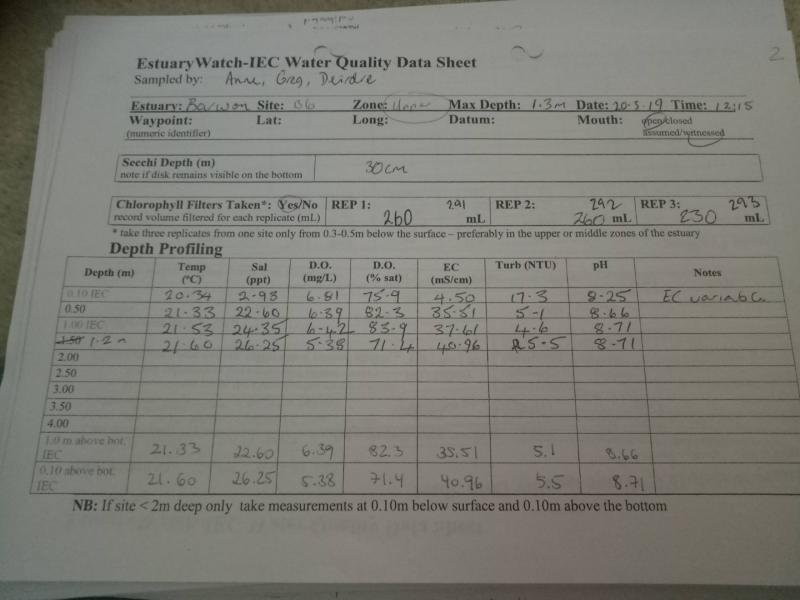 2
EstuaryWatch-IEC Water Quality Data Sheet
Sampled by: Anne, Greg, Deirdre
Estuary: Barwon Site: B6 Zone: Upper Max Depth: 1.3m Date: 20-3-19 Time: 12:15
Waypoint: Lat: Long: Datum: Mouth: open/closed
(numeric identifier) assumed/witnessed
Secchi Depth (m) 30cm
note if disk remains visible on the bottom
Chlorophyll Filters Taken*: Yes/No REP 1: 291 REP 2: 292 REP 3: 293
record volume filtered for each replicate (mL) 260 mL 260 mL 230 mL
* take three replicates from one site only from 0.3-0.5m below the surface – preferably in the upper or middle zones of the estuary
Depth Profiling
Depth (m) Temp (°C) Sal (ppt) D.O. (mg/L) D.O. (% sat) EC (mS/cm) Turb (NTU) pH Notes
0.10 IEC 20.34 2.98 6.81 75.9 4.50 17.3 8.25 EC variable
0.50 21.33 22.60 6.39 82.3 35.51 5.1 8.66
1.00 IEC 21.53 24.35 6.42 83.9 37.61 4.6 8.71
1.50 1.2m 21.60 26.25 5.38 71.4 40.96 5.5 8.71
2.00
2.50
3.00
3.50
4.00
1.0 m above bot. IEC 21.33 22.60 6.39 82.3 35.51 5.1 8.66
0.10 above bot. IEC 21.60 26.25 5.38 71.4 40.96 5.5 8.71
NB: If site < 2m deep only take measurements at 0.10m below surface and 0.10m above the bottom